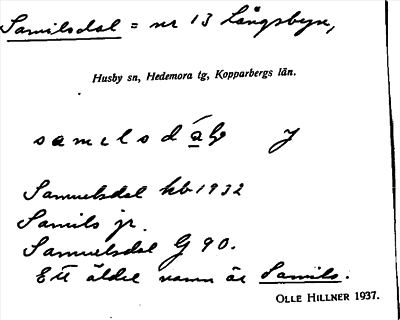 Samilsdal = nr 13 Långsbyn,
Husby sn, Hedemora tg, Kopparbergs län.
Samuelsdal kb 1932
Samils jr.
Samuelsdal G 90.
Ett äldre namn är Samils.
OLLE HILLNER 1937.